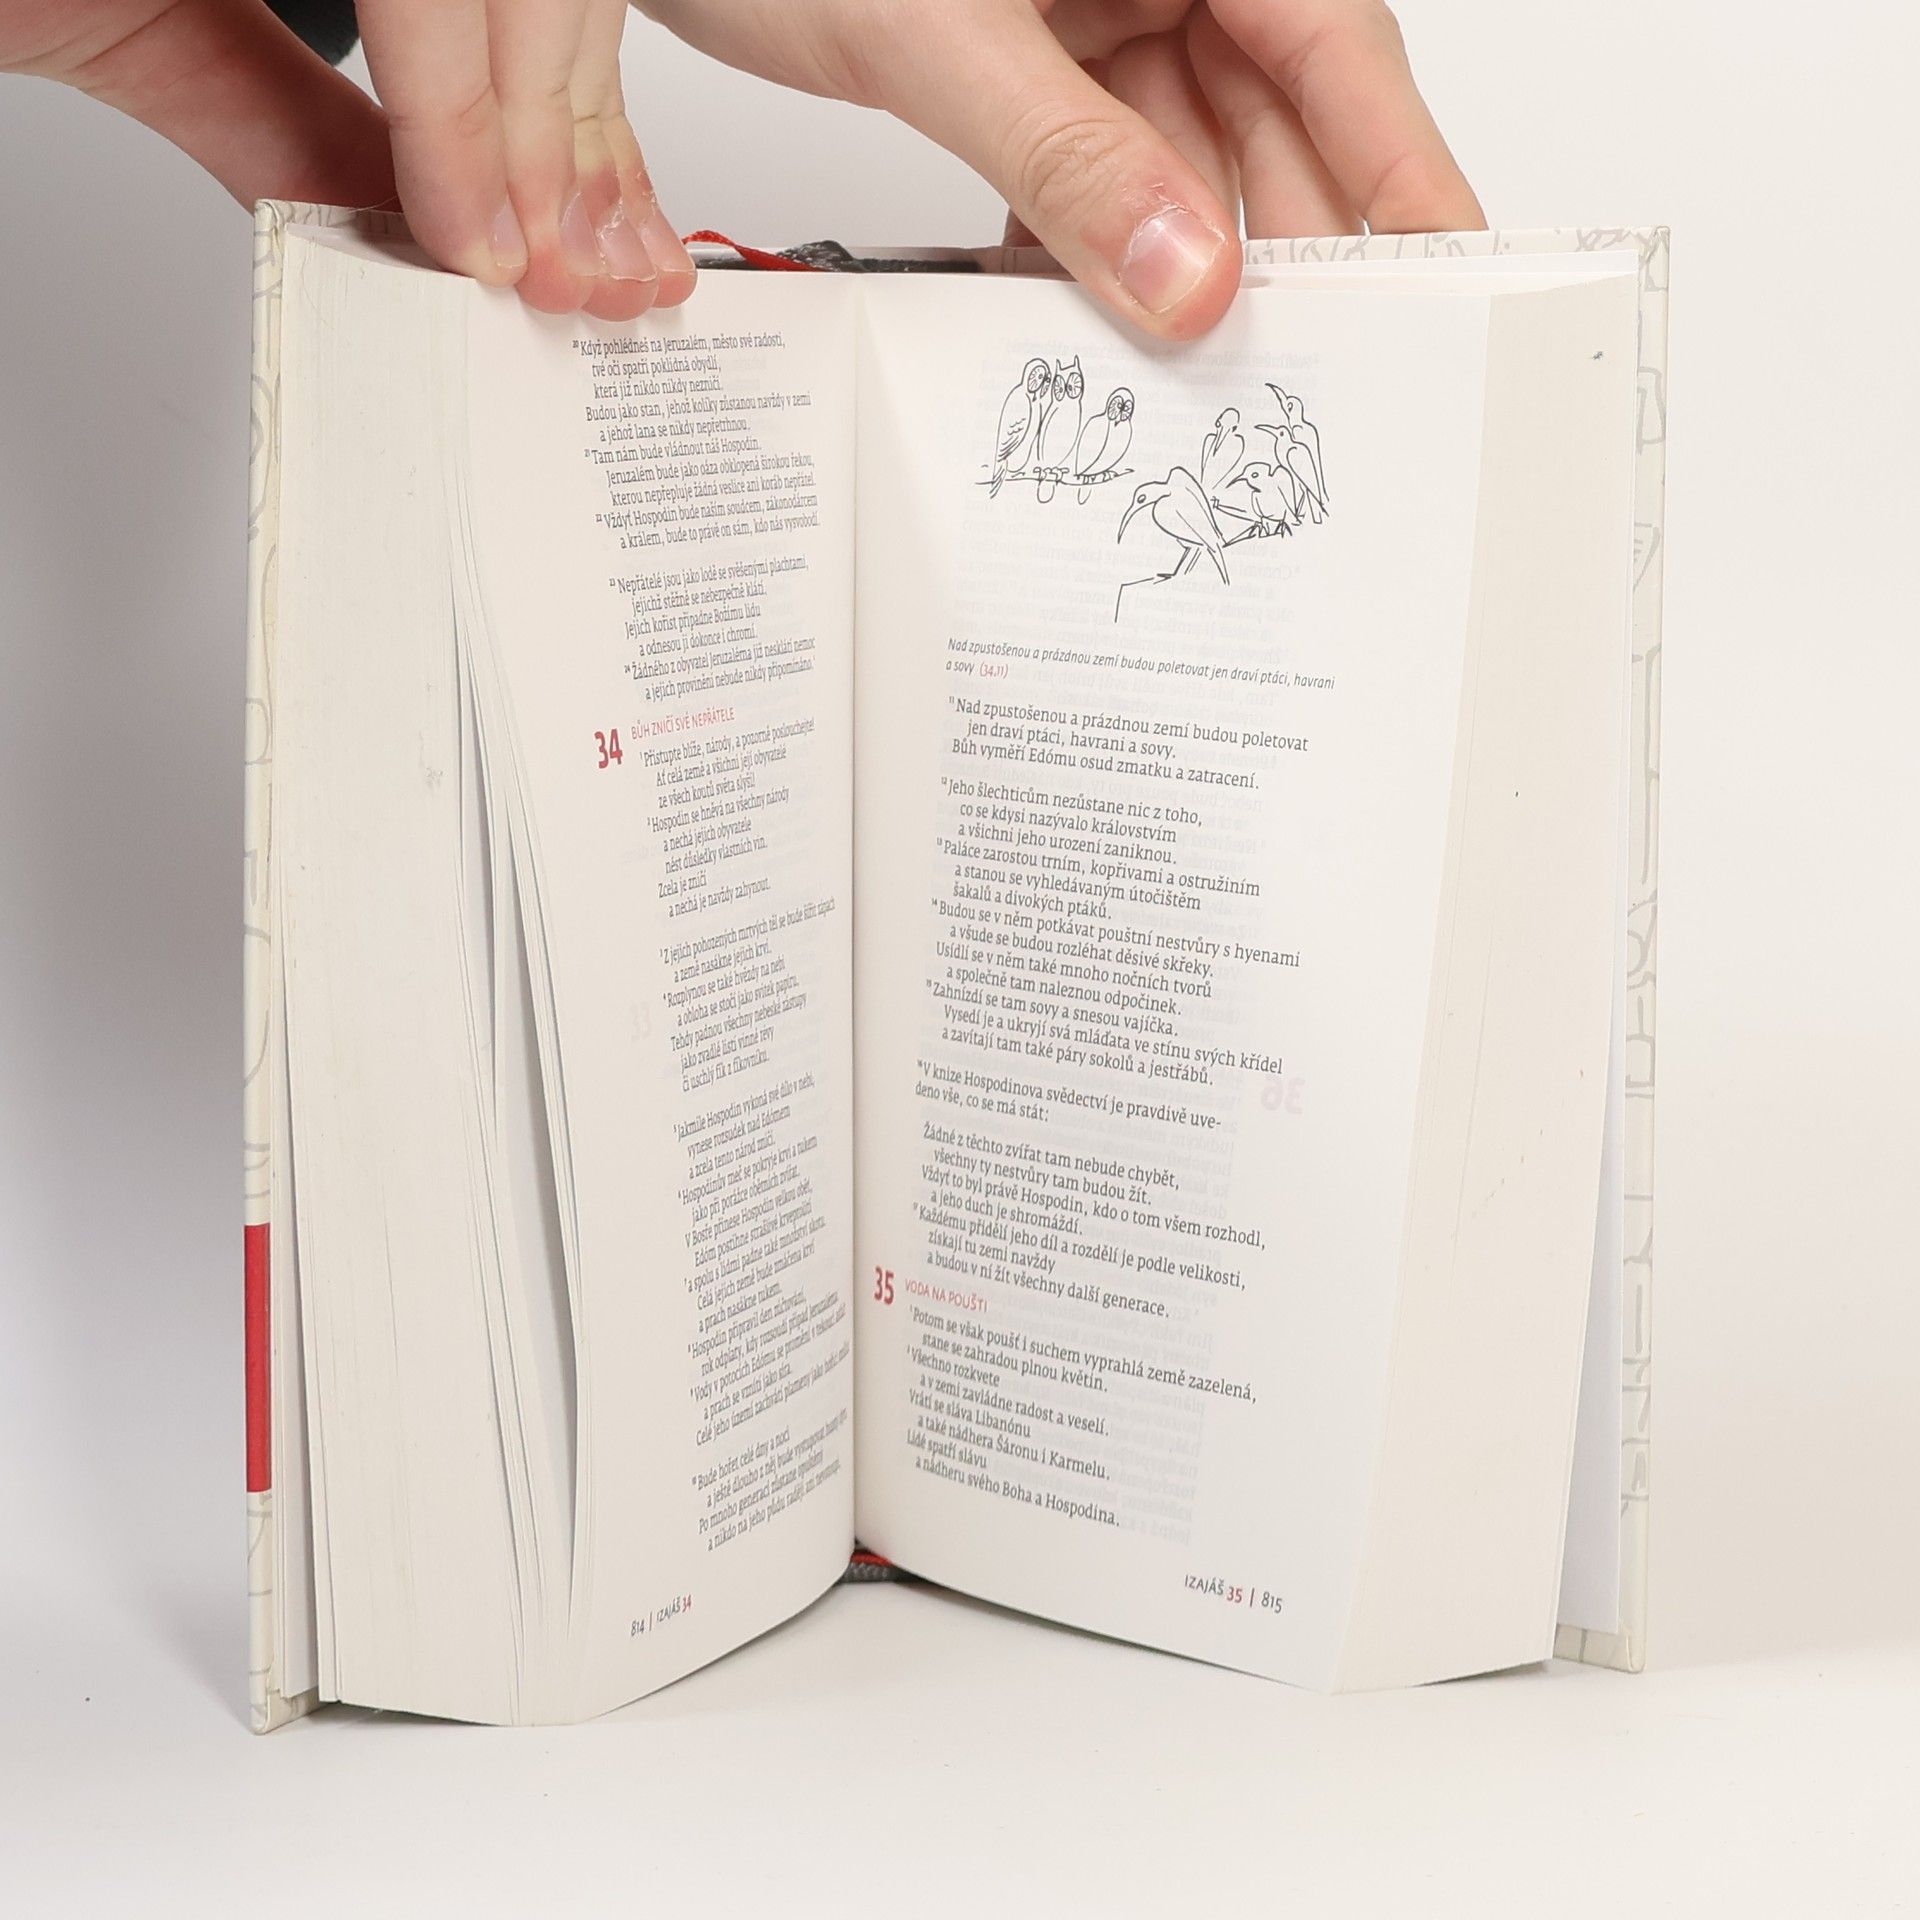 20 Když pohlédneš na Jeruzalém, město své radosti,
tvé oči spatří poklidná obydlí,
která již nikdo nikdy nezničí.
Budou jako stan, jehož kolíky zůstanou navždy v zemi
a jehož lana se nikdy nepřetrhnou.
21 Tam nám bude vládnout náš Hospodin.
Jeruzalém bude jako oáza obklopená širokou řekou,
kterou nepřepluje žádná veslice ani koráb nepřátel.
22 Vždyť Hospodin bude naším soudcem, zákonodárcem
a králem, bude to právě on sám, kdo nás vysvobodí.
23 Nepřátelé jsou jako lodě se svěšenými plachtami,
jejichž stěžně se nebezpečně klátí.
Jejich kořist připadne Božímu lidu
a odnesou ji dokonce i chromí.
24 Žádného z obyvatel Jeruzaléma již neskláti nemoc
a jejich provinění nebude nikdy připomínáno.
34 BŮH ZNIČÍ SVÉ NEPŘÁTELE
1 Přistupte blíže, národy, a pozorně poslouchejte!
Ať celá země a všichni její obyvatelé
ze všech koutů světa slyší!
2 Hospodin se hněvá na všechny národy
a nechá jejich obyvatele
nést důsledky vlastních vin.
Zcela je zničí
a nechá je navždy zahynout.
3 Z jejich pohozených mrtvých těl se bude šířit zápach
a země nasákne jejich krví.
4 Rozplynou se také hvězdy na nebi
a obloha se stočí jako svitek papíru.
Tehdy padnou všechny nebeské zástupy
jako zvadlé listí vinné révy
či uschlý fík z fíkovníku.
5 Jakmile Hospodin vykoná své dílo v nebi,
vynese rozsudek nad Edómem
a zcela tento národ zničí.
6 Hospodinův meč se pokryje krví a tukem
jako při porážce obětních zvířat.
V Bosře přinese Hospodin velkou oběť,
Edóm postihne strašlivé krveprolití
7 a spolu s lidmi padne také množství skotu.
Celá jejich země bude zmáčena krví
a prach nasákne tukem.
8 Hospodin připravil den zúčtování,
rok odplaty, kdy rozsoudí případ Jeruzaléma.
9 Vody v potocích Edómu se promění v tekoucí asfalt
a prach se vznítí jako síra.
Celé jeho území zachvátí plameny jako hořící smůlu
10 Bude hořet celé dny a noci
a ještě dlouho z něj bude vystupovat hustý dým.
Po mnoho generací zůstane opuštěný
a nikdo na jeho půdu raději ani nevstoupí.
814 | IZAJÁŠ 34
Nad zpustošenou a prázdnou zemí budou poletovat jen draví ptáci, havrani
a sovy (34,11)
11 Nad zpustošenou a prázdnou zemí budou poletovat
jen draví ptáci, havrani a sovy.
Bůh vyměří Edómu osud zmatku a zatracení.
12 Jeho šlechticům nezůstane nic z toho,
co se kdysi nazývalo královstvím
a všichni jeho urození zaniknou.
13 Paláce zarostou trním, kopřivami a ostružiním
a stanou se vyhledávaným útočištěm
šakalů a divokých ptáků.
14 Budou se v něm potkávat pouštní nestvůry s hyenami
a všude se budou rozléhat děsivé skřeky.
Usídlí se v něm také mnoho nočních tvorů
a společně tam naleznou odpočinek.
15 Zahnízdí se tam sovy a snesou vajíčka.
Vysedí je a ukryjí svá mláďata ve stínu svých křídel
a zavítají tam také páry sokolů a jestřábů.
16 V knize Hospodinova svědectví je pravdivě uve-
deno vše, co se má stát:
Žádné z těchto zvířat tam nebude chybět,
všechny ty nestvůry tam budou žít.
Vždyť to byl právě Hospodin, kdo o tom všem rozhodl,
a jeho duch je shromáždí.
17 Každému přidělí jeho díl a rozdělí je podle velikosti,
získají tu zemi navždy
a budou v ní žít všechny další generace.
35 VODA NA POUŠTI
1 Potom se však poušť i suchem vyprahlá země zazelená,
stane se zahradou plnou květin.
2 Všechno rozkvete
a v zemi zavládne radost a veselí.
Vrátí se sláva Libanónu
a také nádhera Šáronu i Karmelu.
Lidé spatří slávu
a nádheru svého Boha a Hospodina.
IZAJÁŠ 35 | 815